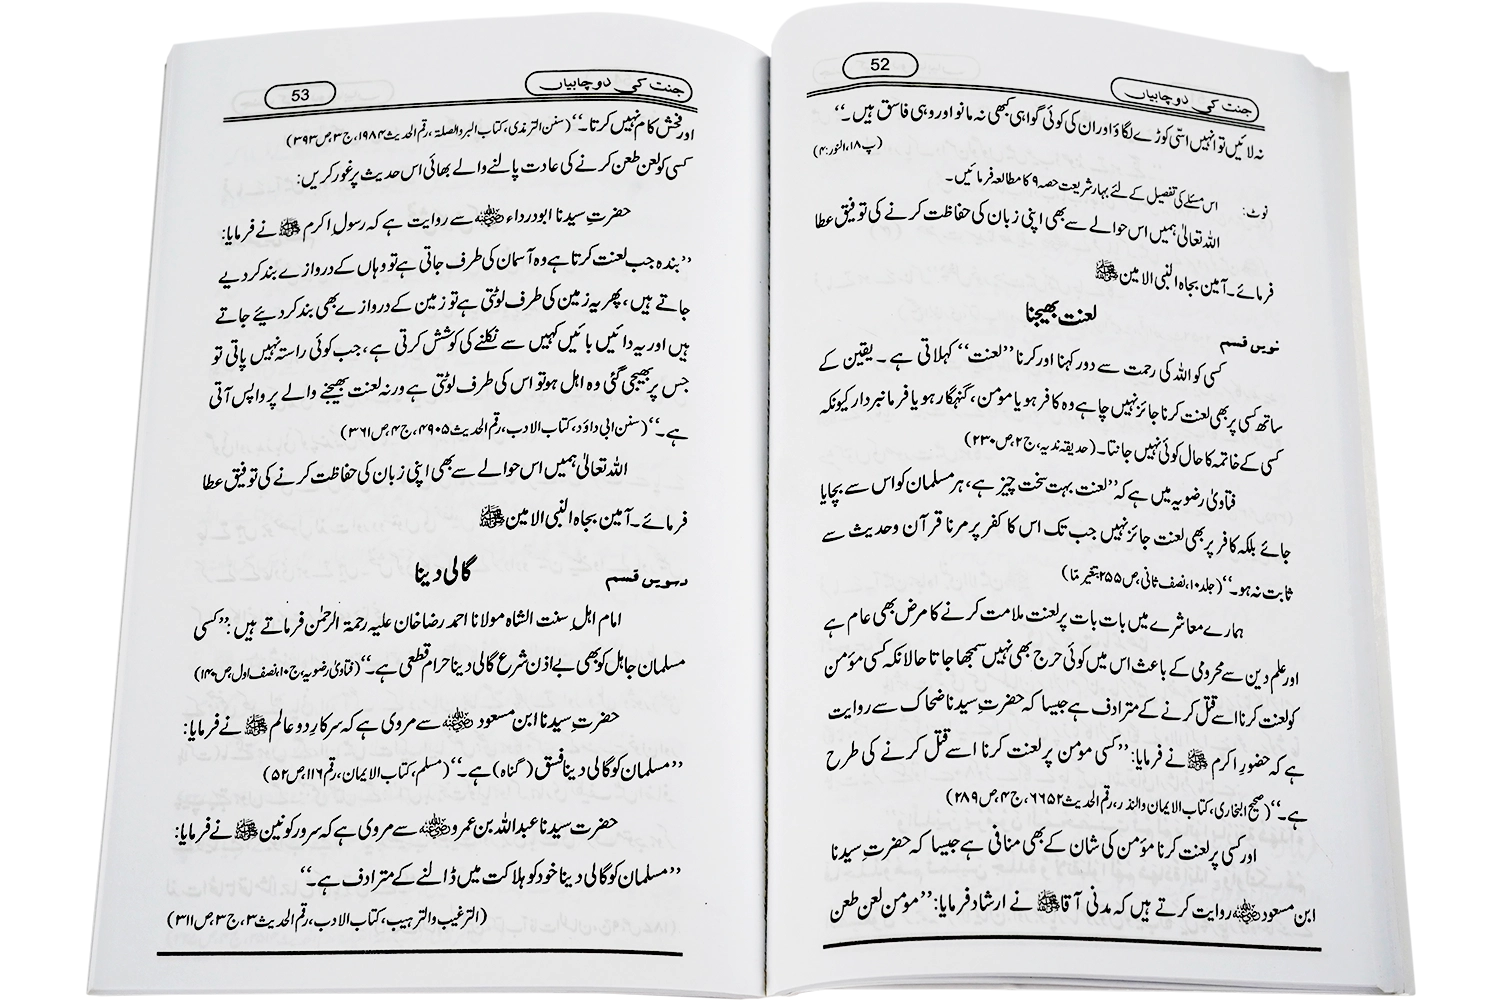 52
جنت کی دو چابیاں
نہ لائیں تو انہیں اسّی کوڑے لگاؤ اور ان کی کوئی گواہی کبھی نہ مانو اور وہی فاسق ہیں۔‘‘
(پ۱۸،النور:۴)
نوٹ: اس مسئلے کی تفصیل کے لئے بہار شریعت حصہ ۹ کا مطالعہ فرمائیں۔
اللہ تعالیٰ ہمیں اس حوالے سے بھی اپنی زبان کی حفاظت کرنے کی توفیق عطا
فرمائے۔ آمین بجاہ النبی الامین ﷺ
لعنت بھیجنا
نویں قسم
کسی کو اللہ کی رحمت سے دور کہنا اور کرنا ’’لعنت‘‘ کہلاتی ہے ۔ یقین کے
ساتھ کسی پر بھی لعنت کرنا جائز نہیں چاہے وہ کافر ہو یا مؤمن، گنہگار ہو یا فرمانبردار کیونکہ
کسی کے خاتمہ کا حال کوئی نہیں جانتا۔ (حدیقہ ندیہ، ج۲،ص۲۳۰)
فتاویٰ رضویہ میں ہے کہ ’’لعنت بہت سخت چیز ہے، ہر مسلمان کو اس سے بچایا
جائے بلکہ کافر پر بھی لعنت جائز نہیں جب تک اس کا کفر پر مرنا قرآن وحدیث سے
ثابت نہ ہو۔‘‘ (جلد۱۰،نصف ثانی،ص۲۵۵،بتغیر مّا)
ہمارے معاشرے میں بات بات پر لعنت ملامت کرنے کا مرض بھی عام ہے
اور علم دین سے محرومی کے باعث اس میں کوئی حرج بھی نہیں سمجھا جاتا حالانکہ کسی مؤمن
کو لعنت کرنا اسے قتل کرنے کے مترادف ہے جیسا کہ حضرتِ سیدنا ضحاک سے روایت
ہے کہ حضورِ اکرم ﷺ نے فرمایا: ’’کسی مؤمن پر لعنت کرنا اسے قتل کرنے کی طرح
ہے۔‘‘ (صحیح البخاری، کتاب الایمان والنذر،رقم الحدیث۶۶۵۲،ج۴،ص۲۸۹)
اور کسی پر لعنت کرنا مؤمن کی شان کے بھی منافی ہے جیسا کہ حضرتِ سیدنا
ابن مسعود ؓ روایت کرتے ہیں کہ مدنی آقا ﷺ نے ارشاد فرمایا: ’’مؤمن لعن طعن
53
جنت کی دو چابیاں
اور فحش کام نہیں کرتا۔‘‘ (سنن الترمذی، کتاب البر والصلۃ، رقم الحدیث۱۹۸۴،ج۳،ص۳۹۳)
کسی کو لعن طعن کرنے کی عادت پالنے والے بھائی اس حدیث پر غور کریں:
حضرتِ سیدنا ابودرداء ؓ سے روایت ہے کہ رسولِ اکرم ﷺ نے فرمایا:
’’بندہ جب لعنت کرتا ہے وہ آسمان کی طرف جاتی ہے تو وہاں کے دروازے بند کر دیے
جاتے ہیں، پھر یہ زمین کی طرف لوٹتی ہے تو زمین کے دروازے بھی بند کر دیئے جاتے
ہیں اور یہ دائیں بائیں کہیں سے نکلنے کی کوشش کرتی ہے، جب کوئی راستہ نہیں پاتی تو
جس پر بھیجی گئی وہ اہل ہو تو اس کی طرف لوٹتی ہے ورنہ لعنت بھیجنے والے پر واپس آتی
ہے۔‘‘ (سنن ابی داؤد، کتاب الادب، رقم الحدیث۴۹۰۵،ج۴،ص۳۶۱)
اللہ تعالیٰ ہمیں اس حوالے سے بھی اپنی زبان کی حفاظت کرنے کی توفیق عطا
فرمائے۔ آمین بجاہ النبی الامین ﷺ
گالی دینا
دسویں قسم
امام اہلِ سنت الشاہ مولانا احمد رضا خان علیہ رحمۃ الرحمٰن فرماتے ہیں: ’’کسی
مسلمان جاہل کو بھی بے اذنِ شرع گالی دینا حرام قطعی ہے۔‘‘ (فتاویٰ رضویہ،ج۱۰،نصف اول،ص۱۴۰)
حضرتِ سیدنا ابن مسعود ؓ سے مروی ہے کہ سرکارِ دو عالم ﷺ نے فرمایا:
’’مسلمان کو گالی دینا فسق (گناہ) ہے۔‘‘ (مسلم، کتاب الایمان، رقم۱۱۶،ص۵۲)
حضرت سیدنا عبداللہ بن عمرو ؓ سے مروی ہے کہ سرورِ کونین ﷺ نے فرمایا:
’’مسلمان کو گالی دینا خود کو ہلاکت میں ڈالنے کے مترادف ہے۔‘‘
(الترغیب والترہیب، کتاب الادب، رقم الحدیث۳،ج۳،ص۳۱۱)